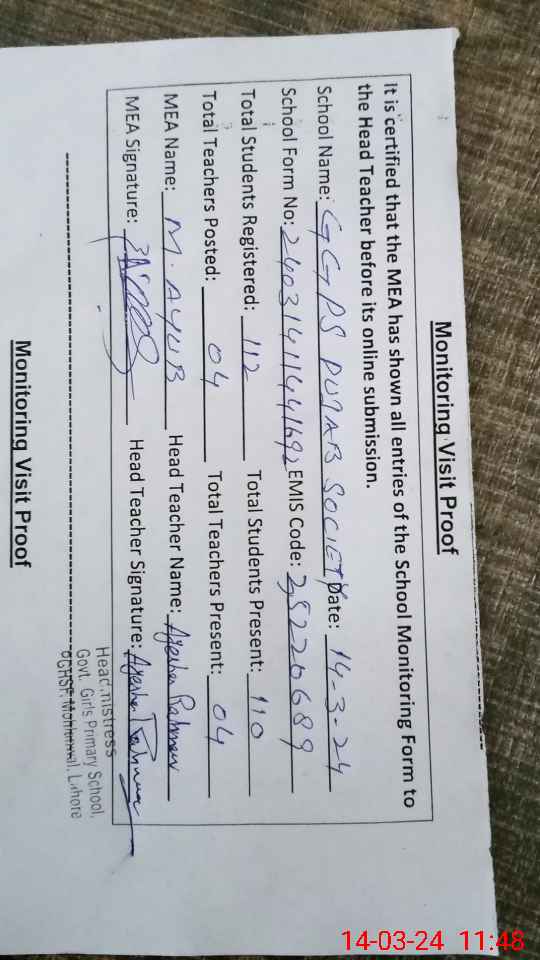 Monitoring Visit Proof
It is certified that the MEA has shown all entries of the School Monitoring Form to
the Head Teacher before its online submission.
School Name: GGPS PUJAB SOCIETY Date: 14-3-24
School Form No: 24031411441692 EMIS Code: 35220689
Total Students Registered: 112 Total Students Present: 110
Total Teachers Posted: 04 Total Teachers Present: 04
MEA Name: M. AYUB Head Teacher Name: Ayesha Rahman
MEA Signature: Head Teacher Signature: Ayesha
Headmistress
Govt. Girls Primary School,
Lahore
Monitoring Visit Proof
14-03-24 11:48